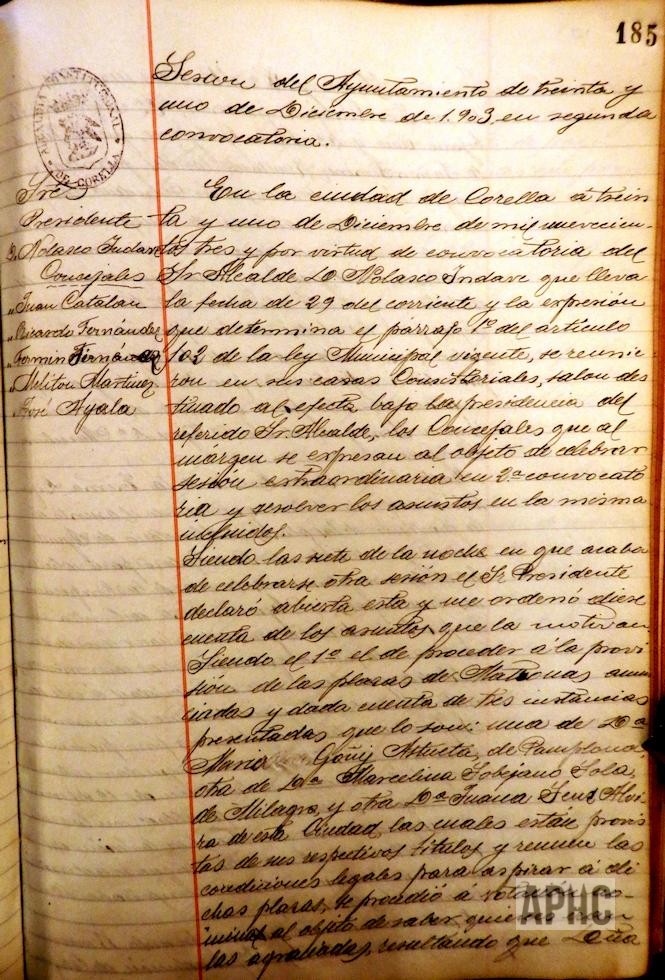 185
ALCALDIA CONSTITUCIONAL
DE CORELLA
Sesion del Ayuntamiento de treinta y
uno de Diciembre de 1.903, en segunda
convocatoria.
Sres
Presidente
D. Nolasco Indave
Concejales
" Juan Catalan
" Ricardo Fernández
" Fermin Fernández
" Meliton Martinez
" José Ayala
En la ciudad de Corella á trein
ta y uno de Diciembre de mil novecien-
tos tres y por virtud de convocatoria del
Sr. Alcalde D. Nolasco Indave que lleva
la fecha de 29 del corriente y la expresión
que determina el párrafo 1º del artículo
102 de la ley Municipal vigente, se reunie-
ron en sus casas Consistoriales, salon des
tinado al efecto bajo la presidencia del
referido Sr. Alcalde, los Concejales que al
márgen se expresan al objeto de celebrar
sesion extraordinaria en 2ª convocato
ria y resolver los asuntos en la misma
incluidos.
Siendo las siete de la noche en que acaba
de celebrarse otra sesión el Sr. Presidente
declaró abierta esta y me ordenó diese
cuenta de los asuntos que la motivan.
Siendo el 1º el de proceder á la provi
sión de las plazas de Matronas anun
ciadas y dada cuenta de tres instancias
presentadas que lo son: una de Dª
Maria Goñi Astueta, de Pamplona
otra de Dª Marcelina Sobejano Sola,
de Milagro, y otra Dª Juana Senz Alvi
ra de esta Ciudad, las cuales están provis
tas de sus respectivos títulos y reunen las
condiciones legales para aspirar á di
chas plazas, se procedió á votación no-
minal al objeto de saber quienes eran
las agraciadas, resultando que Doña
APHC